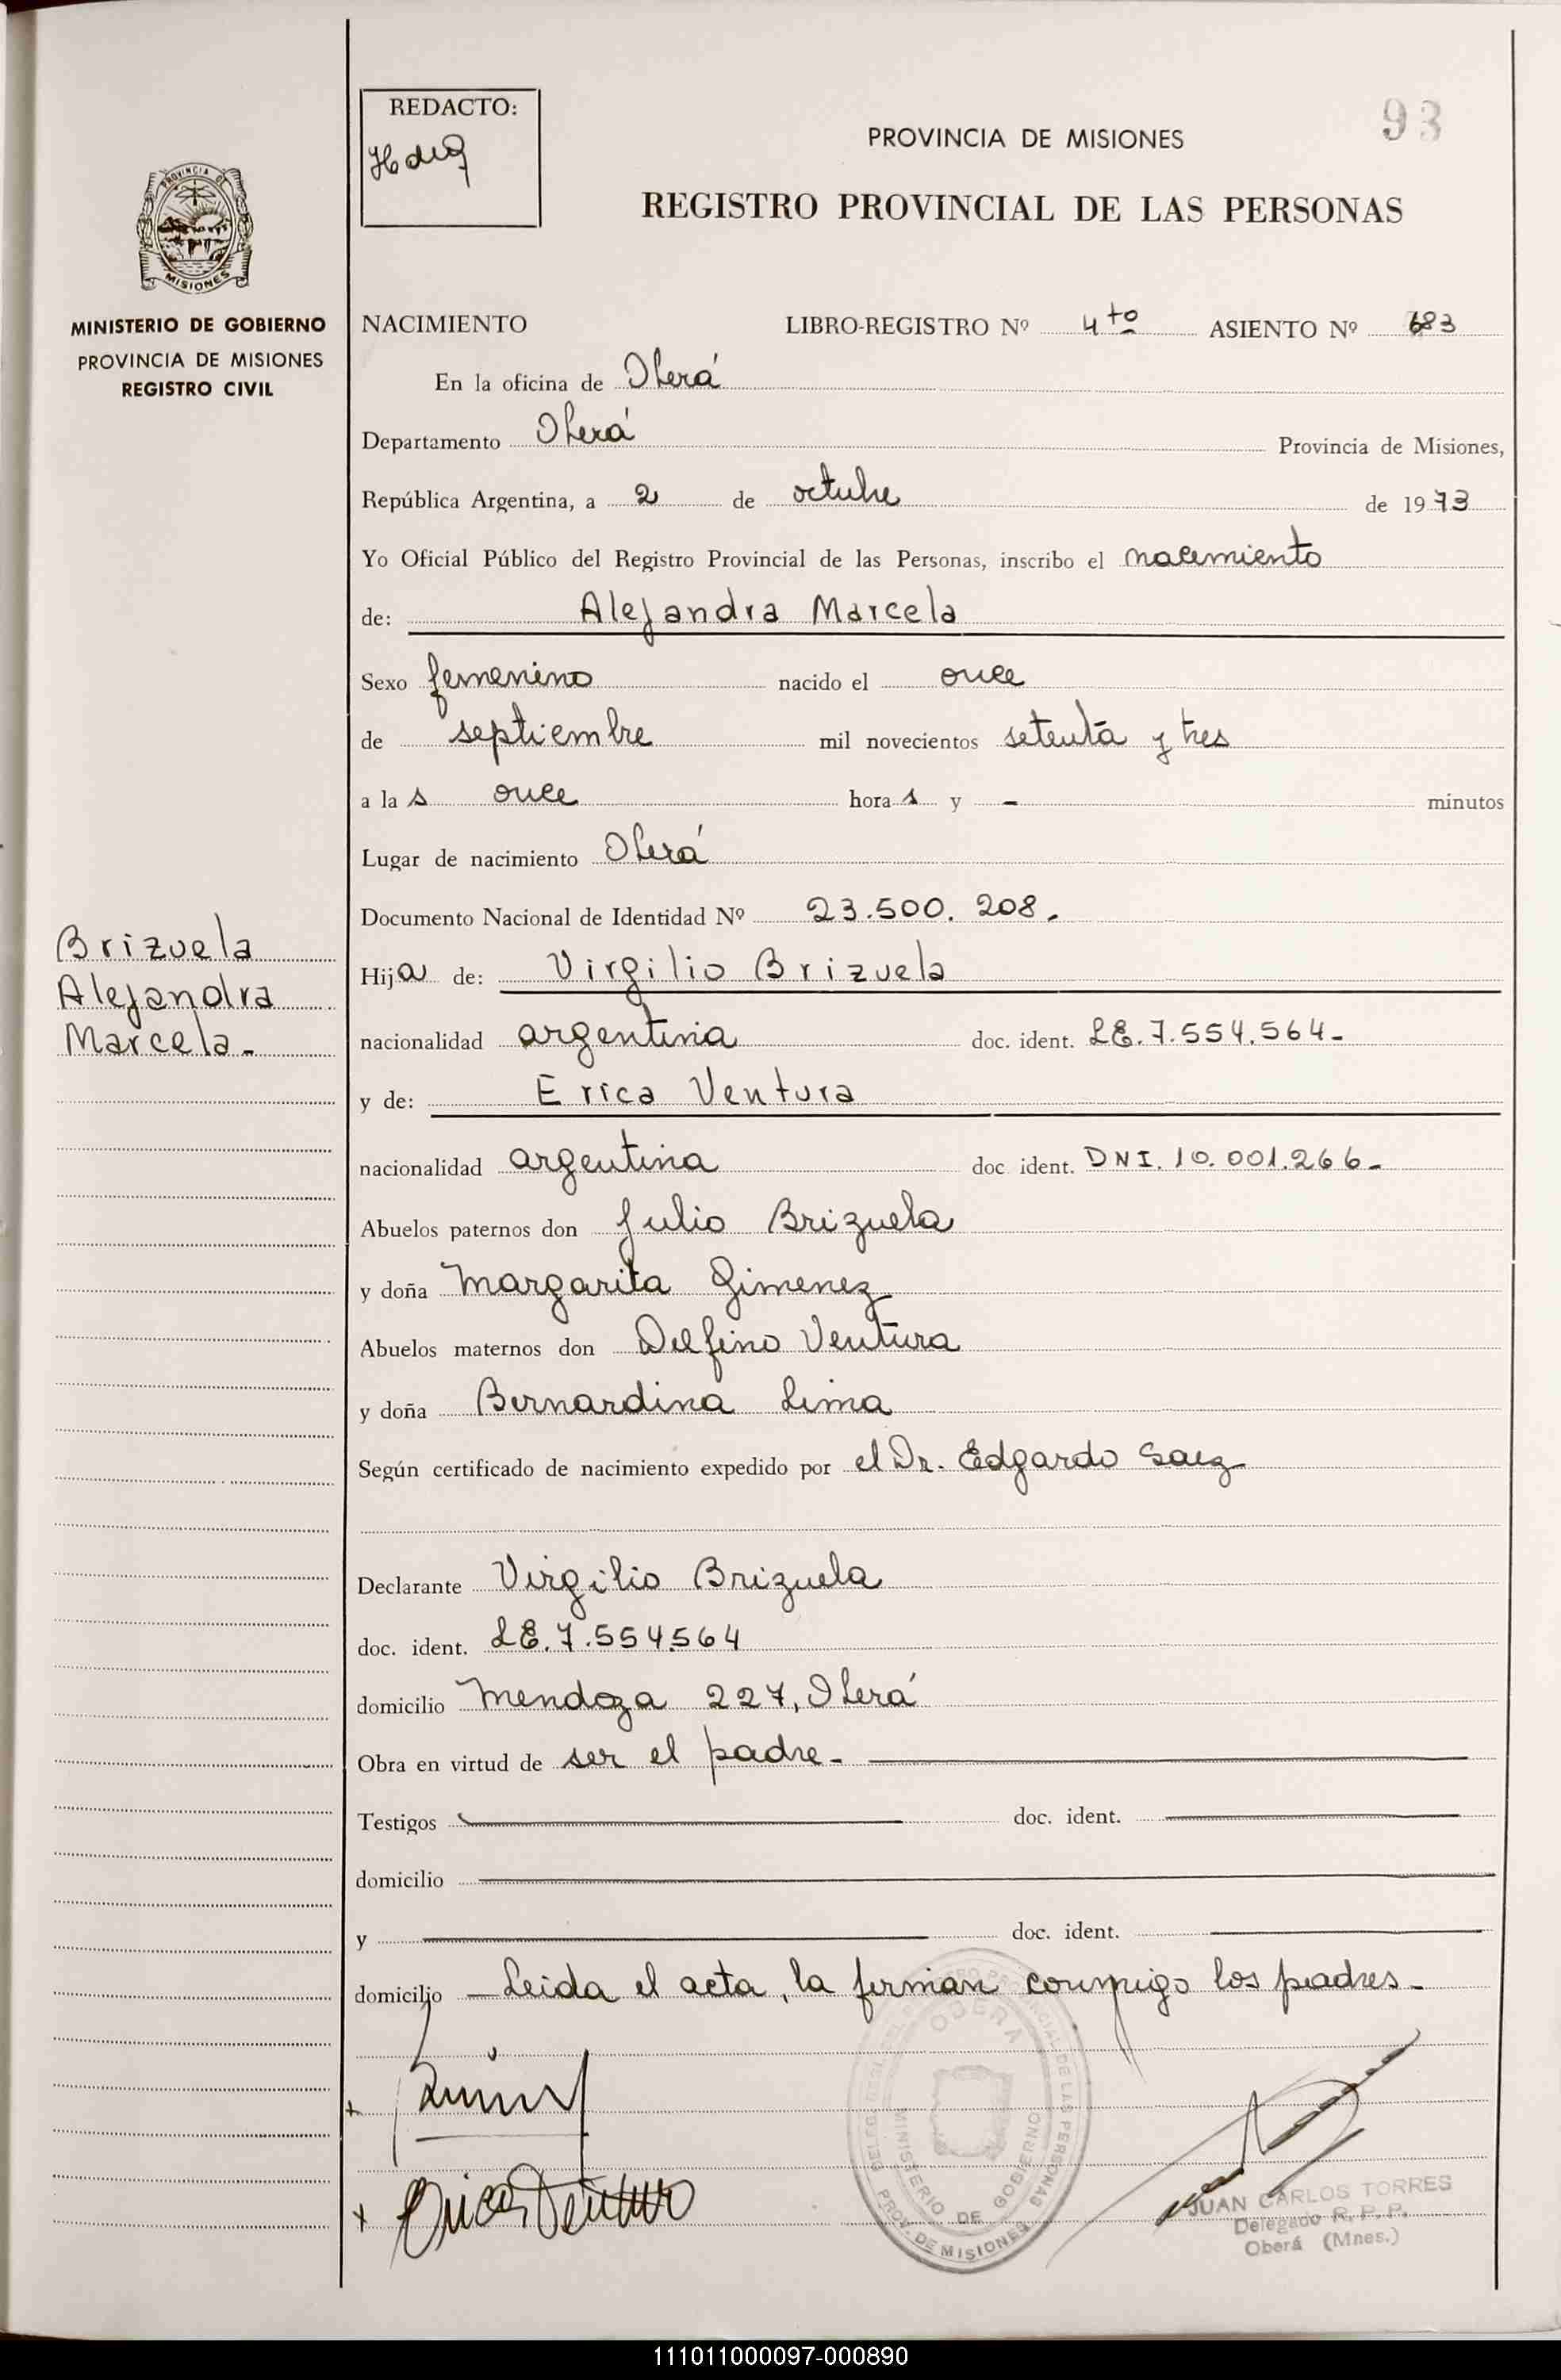 93
REDACTO:
PROVINCIA DE MISIONES
REGISTRO PROVINCIAL DE LAS PERSONAS
PROVINCIA DE
MISIONES
MINISTERIO DE GOBIERNO
PROVINCIA DE MISIONES
REGISTRO CIVIL
NACIMIENTO LIBRO-REGISTRO Nº 4to ASIENTO Nº 683
En la oficina de Oberá
Departamento Oberá Provincia de Misiones,
República Argentina, a 2 de octubre de 1973
Yo Oficial Público del Registro Provincial de las Personas, inscribo el nacimiento
de: Alejandra Marcela
Sexo femenino nacido el once
de septiembre mil novecientos setenta y tres
a la s once hora s y - minutos
Lugar de nacimiento Oberá
Documento Nacional de Identidad Nº 23.500.208.
Brizuela
Alejandra
Marcela.-
Hija de: Virgilio Brizuela
nacionalidad argentina doc. ident. LE. 7.554.564-
y de: Erica Ventura
nacionalidad argentina doc ident. DNI. 10.001.266-
Abuelos paternos don Julio Brizuela
y doña Margarita Gimenez
Abuelos maternos don Delfino Ventura
y doña Bernardina Lima
Según certificado de nacimiento expedido por el Dr. Edgardo Saez
Declarante Virgilio Brizuela
doc. ident. LE. 7.554564
domicilio Mendoza 227, Oberá
Obra en virtud de ser el padre-
Testigos doc. ident.
domicilio
y doc. ident.
domicilio - Leida el acta, la firman conmigo los padres-
OBERA
MINISTERIO DE GOBIERNO
PROV. DE MISIONES
Erica Ventura
JUAN CARLOS TORRES
Delegado R. P. P.
Oberá (Mnes.)
111011000097-000890